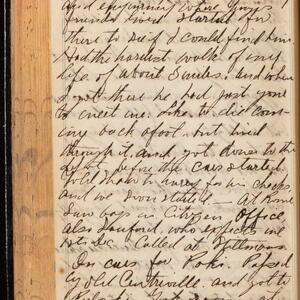 and enquired where
friends lived started on
there to see if I could find him
Had the hardest walk of my
life of about 5 miles. And when
I got there he had just gone
to meet me. Like to did com-
ing back afoot, but lived
through it, and got down to the
before the cars started
Told them to hurry for us
and we soon started — At Rome
Saw boys in Citizen Office,
also Sanford, who expects me
to. Called at
In cars for Po'k. Passed
by old Centreville, and got to